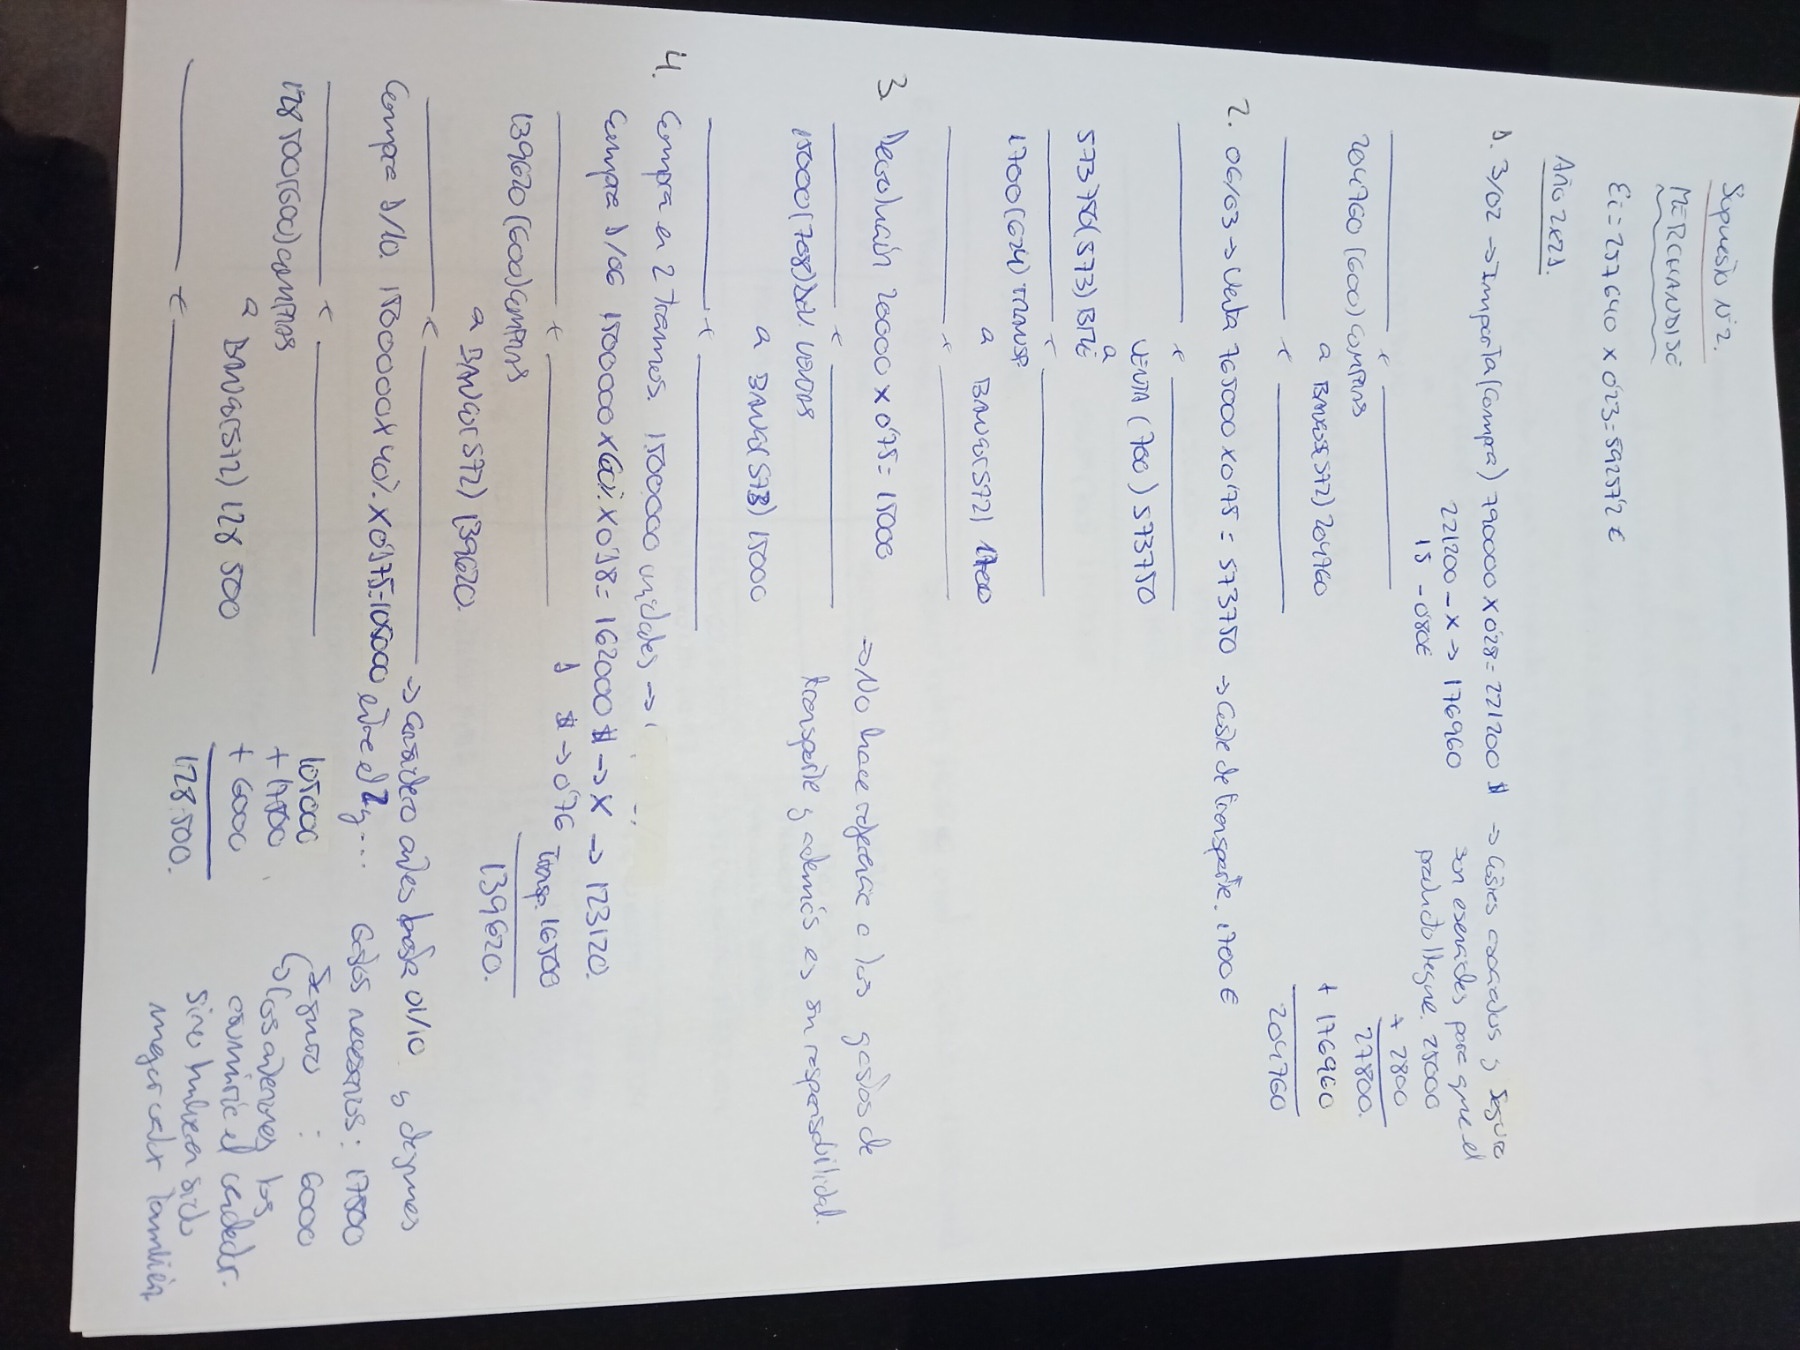 Supuesto Nº2.
MERCHANDISE
Ei = 257640 x 0'23 = 59257'2 €
Año 2x21.
1. 3/02 → Importa (Compra) 790000 x 0'28 = 221200 $ → Costes asociados y seguro
son esenciales para que el
producto llegue. 25000
+ 2800
27800.
+ 176960
204760
221200 - x → 176960
1$ - 0'80€
204760 (600) Compras
a Bancos (572) 204760
2. 06/03 → Venta 765000 x 0'75 = 573750 → Coste de transporte. 1700 €
VENTA (700) 573750
573750 (573) BTE
a
1700 (624) TRANSP
a BANCOS (572) 1700
3. Devolución 20000 x 0'75 = 15000
→ No hace referencia a los gastos de
transporte y además es sin responsabilidad.
15000 (708) Dev ventas
a BANCOS (573) 15000
4. Compra en 2 tramos. 1500000 unidades →
Compra 1/06 1500000 x 60% x 0'18 = 162000 $ → x → 123120.
1 $ → 0'76 Transp. 16500
139620.
139620 (600) COMPRAS
a BANCOS (572) 139620.
→ Considero antes hasta 01/10 y despues
Compra 1/10. 1500000 x 40% x 0'175 = 105000 entre el 2 y ...
Gastos necesarios: 17500
Seguro : 6000
↳ Los anteriores los
asumiría el vendedor.
sino hubieran sido
mayor valor también
105000
+ 17500
+ 6000
128.500.
128500 (600) COMPRAS
a BANCOS (572) 128 500